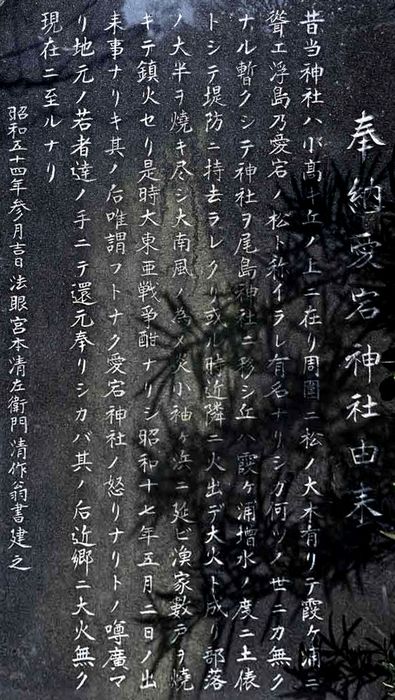 奉納愛宕神社由来
昔当神社ハ小高キ丘ノ上ニ在リ周囲ニ松ノ大木有リテ霞ヶ浦ニ
聳エ浮島乃愛宕ノ松ト称イラレ有名ナリシガ何ツノ世ニカ無ク
ナル暫クシテ神社ヲ尾島神社ニ移シ丘ハ霞ヶ浦増水ノ度ニ土俵
トシテ堤防ニ持去ラレタリ或ル時近隣ニ火出デ大火ト成リ部落
ノ大半ヲ焼キ尽シ大南風ノ為メ炎小袖ヶ浜ニ延ビ漁家数戸ヲ焼
キテ鎮火セリ是時大東亜戦争酣ナリシ昭和十七年五月二日ノ出
来事ナリキ其ノ后唯謂フトナク愛宕神社ノ怒リナリトノ噂廣マ
リ地元ノ若者達ノ手ニテ還元奉リシカバ其ノ后近郷ニ大火無ク
現在ニ至ルナリ
昭和五十四年参月吉日法眼宮本清左衛門清作翁書建之